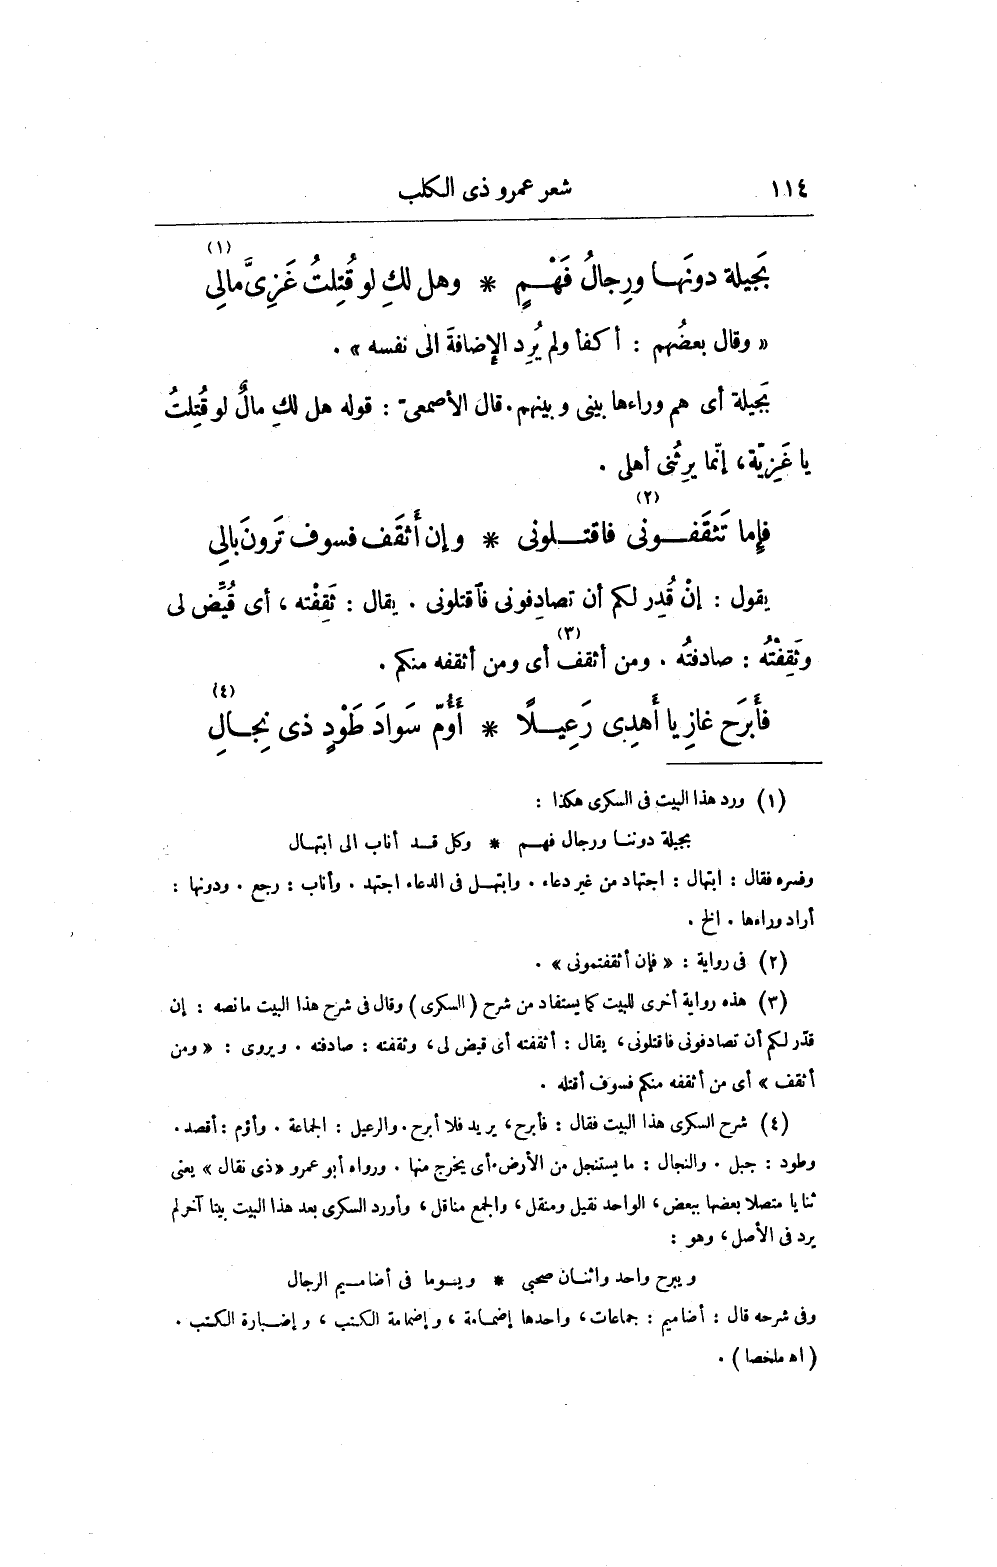 ١١٤ شعر عمرو ذى الكلب
(١)
بَجيلة دونَها ورِجالُ فَهْمٍ * وهل لكِ لو قُتِلتُ غَزِىَّ مالِى
« وقال بعضُهم : أكفأ ولم يُرِد الإضافةَ الى نفسه » .
بَجيلة أى هم وراءها بينى وبينهم. قال الأصمعىّ : قوله هل لكِ مالٌ لو قُتِلتُ
يا غَزِيّة، إنّما يرِثُنى أهلى .
(٢)
فإِما تَثقَفونى فاقتلونى * وإن أَثقَف فسوف تَرونَ بالِى
يقول : إنْ قُدِر لكم أن تصادِفونى فاَقتلونى . يقال : ثَقِفْته ، أى قُيِّض لى
(٣)
وثَقِفْتُه : صادفتُه . ومن أثقف أى ومن أثقفه منكم .
(٤)
فأَبرَح غازِيا أَهدِى رَعِيلًا * أَؤُمّ سَوادَ طَوْدٍ ذى نِجالِ
(١) ورد هذا البيت فى السكرى هكذا :
بجيلة دوننا ورجال فهم * وكل قد أناب الى ابتهال
وفسره فقال : ابتهال : اجتهاد من غير دعاء . وابتهل فى الدعاء اجتهد . وأناب : رجع . ودونها :
أراد وراءها . الخ .
(٢) فى رواية : « فإن أثقفتمونى » .
(٣) هذه رواية أخرى للبيت كما يستفاد من شرح (السكرى) وقال فى شرح هذا البيت ما نصه : إن
قدّر لكم أن تصادفونى فاقتلونى، يقال : أثقفته أى قيض لى، وثقفته : صادفته . ويروى : « ومن
أثقف » أى من أثقفه منكم فسوف أقتله .
(٤) شرح السكرى هذا البيت فقال : فأبرح، يريد فلا أبرح. والرعيل : الجماعة . وأؤم : أقصد.
وطود : جبل . والنجال : ما يستنجل من الأرض، أى يخرج منها . ورواه أبو عمرو «ذى نقال» يعنى
ثنايا متصلا بعضها ببعض، الواحد نقيل ومنقل، والجمع مناقل، وأورد السكرى بعد هذا البيت بيتا آخر لم
يرد فى الأصل، وهو :
ويبرح واحد واثنان صحبى * ويسوما فى أضاميم الرجال
وفى شرحه قال : أضاميم : جماعات، واحدها إضمامة ، وإضمامة الكتب ، وإضبارة الكتب .
(اه ملخصا) .